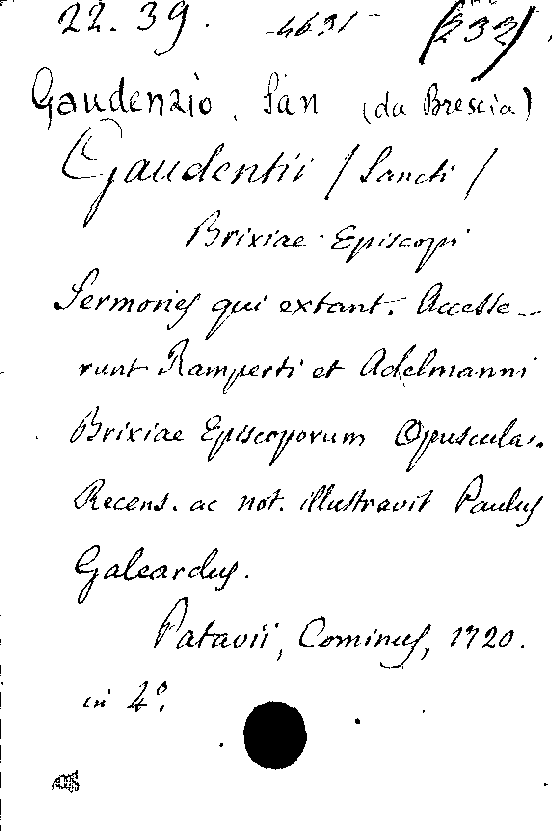 22.39. 4631 (232)
Gaudenzio, San (da Brescia)
Gaudentii / Sancti /
Brixiae Episcopi
Sermones qui extant. Accesse-
runt Ramperti et Adelmanni
Brixiae Episcoporum Opuscula.
Recens. ac not. illustravit Paulus
Galeardus.
Patavii, Cominus, 1720.
in 4º.